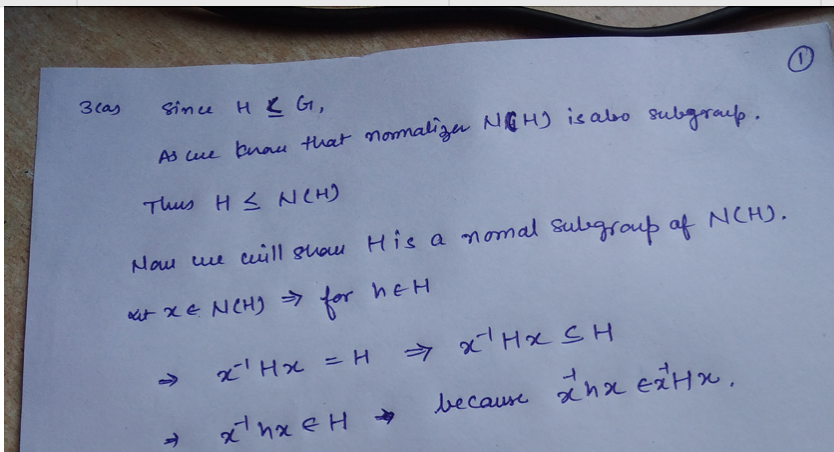 ①
3(a) Since H ≤ G,
As we know that normalizer N(H) is also subgroup.
Thus H ≤ N(H)
Now we will show H is a nomal subgroup of N(H).
let x ∈ N(H) ⇒ for h ∈ H
⇒ x⁻¹Hx = H ⇒ x⁻¹Hx ⊆ H
⇒ x⁻¹hx ∈ H ⇒ because x⁻¹hx ∈ x⁻¹Hx.